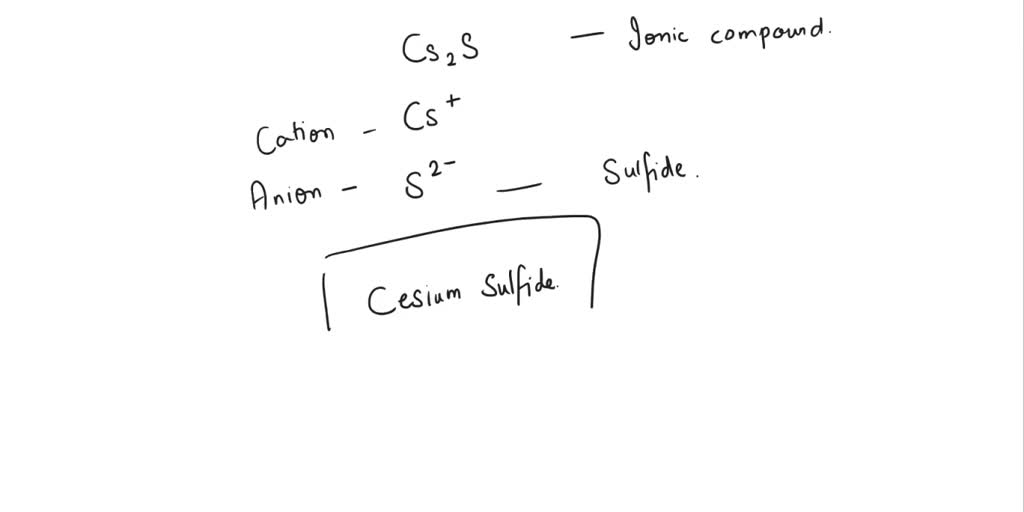 Cs₂S — Ionic compound.
Cation - Cs⁺
Anion - S²⁻ — Sulfide.
Cesium Sulfide.